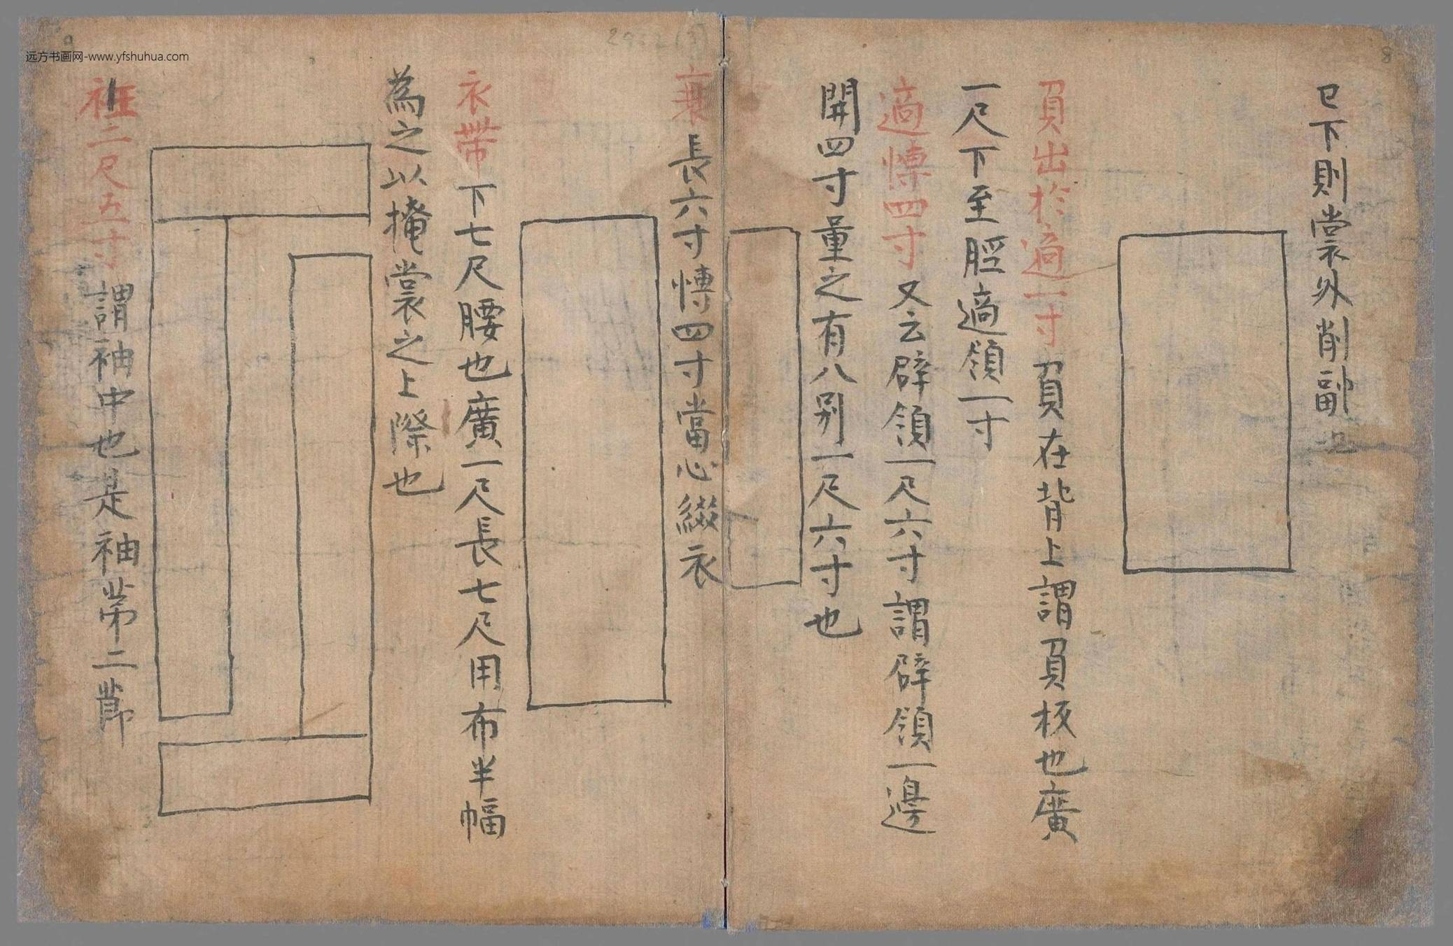 已下則裳外削副也
負出於適一寸負在背上謂負板也廣
一尺下至脛適領一寸
適愽四寸又云辟領一尺六寸謂辟領一邊
開四寸量之有八别一尺六寸也
衰長六寸愽四寸當心綴衣
衣帶下七尺腰也廣一尺長七尺用布半幅
為之以掩裳之上際也
衽二尺五寸謂袖中也是袖苐二節
远方书画网-www.yfshuhua.com
8